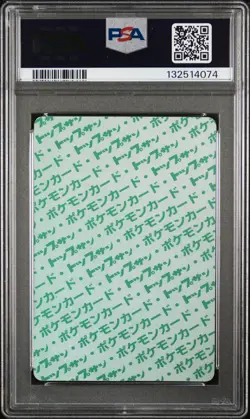 PSA
132514074
トップサン・ポケモンカード・
ポケモンカード・トップサン・
トップサン・ポケモンカード・
ポケモンカード・トップサン・
トップサン・ポケモンカード・
ポケモンカード・トップサン・
トップサン・ポケモンカード・
ポケモンカード・トップサン・